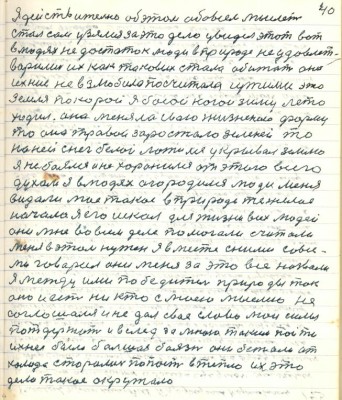 40
Я действительно об этом обо всем мыслет
стал сам узялся за это дело увидел этот вот
в людях недостаток люди в природе не удовлет-
варили их как таковых стала обижат она
их ние не взмобила посчитала чужими это
земля по корой я босой ногой зиму лето
ходил. она меняла сваю жизненаю форму
то она травой заростала зеленей то
на ней снег белой лотился укривал замно
Я не боялся и не хоранился от этого всего
духам я в людях огородился люди меня
видали мае такое в природе тяжелое
начало я его искал для жизни всех людей
они мне во всем деле помогали считали
меня в этом нужен я вместе с ними сови-
ли говарил они меня за это все назвали
Я между ими победител природы так
оно и ест ни кто с моею мыслию не
согласился и не дал свае слово мои силы
потдержат и вслед за мною таким пойти
у них была балшая баязн они бегали от
холода старалис попаст в тепло их это
дело такое окружало